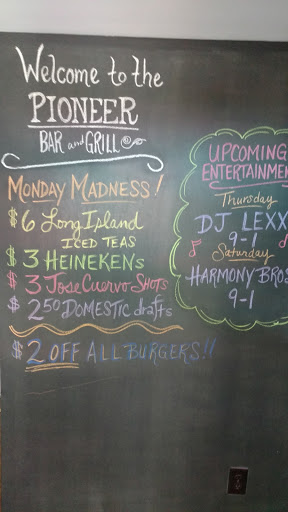 Welcome to the
PIONEER
BAR and GRILL
MONDAY MADNESS!
$6 Long Island
ICED TEAS
$3 HEINEKENS
$3 Jose Cuervo SHOTS
$2 50 DOMESTIC drafts
$2 OFF ALL BURGERS!!
UPCOMING
ENTERTAINMEN
Thursday
DJ LEXX
9-1
Saturday
HARMONY BROS
9-1